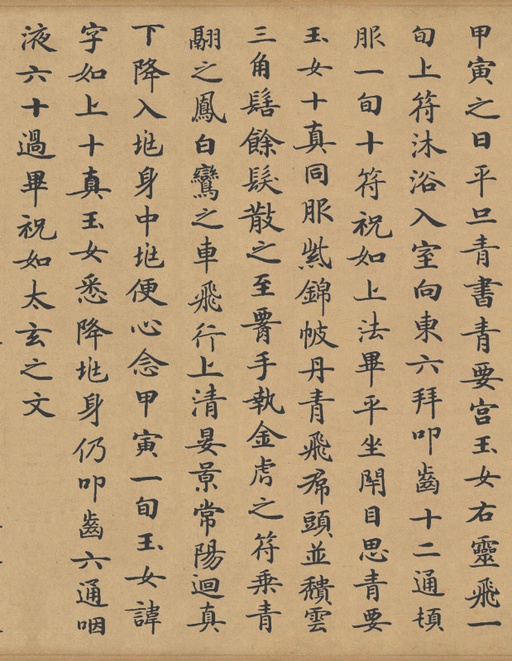 甲寅之日平旦青書青要宮玉女右靈飛一
旬上符沐浴入室向東六拜叩齒十二通頓
服一旬十符祝如上法畢平坐閇目思青要
玉女十真同服紫錦帔丹青飛帬頭並頹雲
三角髻餘髮散之至腰手執金虎之符乗青
翮之鳳白鸞之車飛行上清晏景常陽迴真
下降入兆身中兆便心念甲寅一旬玉女諱
字如上十真玉女悉降兆身仍叩齒六通咽
液六十過畢祝如太玄之文